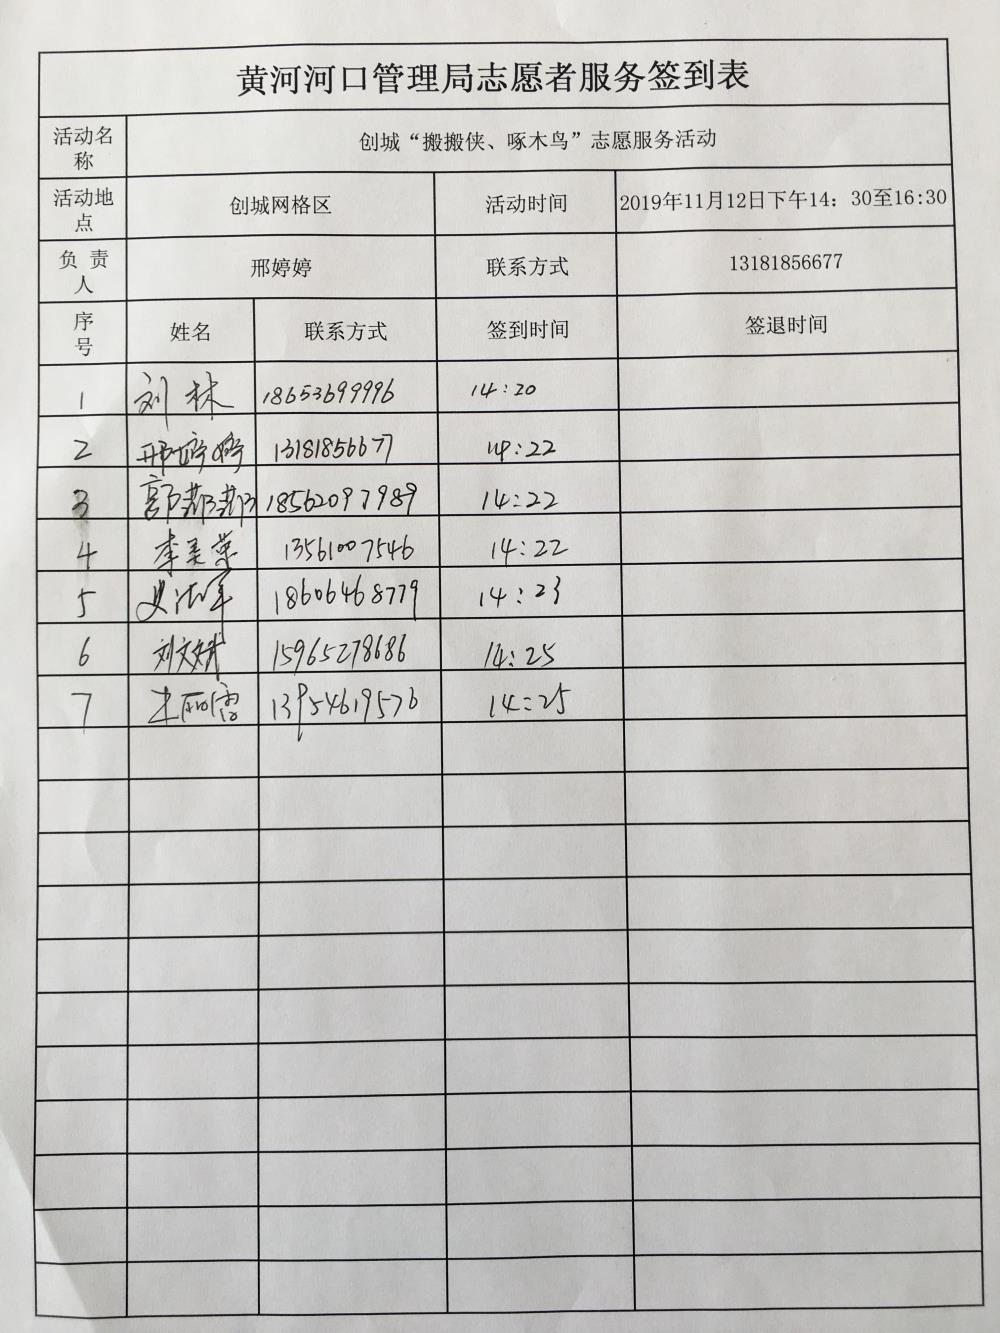 黄河河口管理局志愿者服务签到表
活动名称 创城“搬搬侠、啄木鸟”志愿服务活动
活动地点 创城网格区 活动时间 2019年11月12日下午14：30至16:30
负责人 邢婷婷 联系方式 13181856677
序号 姓名 联系方式 签到时间 签退时间
1 刘林 18653699996 14:20
2 邢婷婷 13181856677 14:22
3 郭 18562097989 14:22
4 李美荣 13561007546 14:22
5 18606468779 14:23
6 刘文斌 15965278686 14:25
7 13954619576 14:25